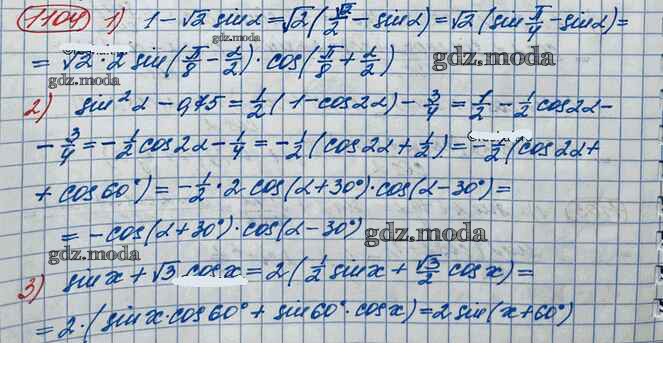 1104 1) 1 - √2 sin α = √2 (√2/2 - sin α) = √2 (sin π/4 - sin α) =
gdz.moda
= √2 · 2 sin(π/8 - α/2) · cos(π/8 + α/2) gdz.moda
gdz.moda
2) sin² α - 0,75 = 1/2 (1 - cos 2α) - 3/4 = 1/2 - 1/2 cos 2α -
- 3/4 = - 1/2 cos 2α - 1/4 = - 1/2 (cos 2α + 1/2) = - 1/2 (cos 2α +
+ cos 60°) = - 1/2 · 2 cos(α + 30°) · cos(α - 30°) =
= - cos(α + 30°) · cos(α - 30°) gdz.moda
gdz.moda
3) sin x + √3 cos x = 2 (1/2 sin x + √3/2 cos x) =
= 2 · (sin x · cos 60° + sin 60° · cos x) = 2 sin(x + 60°)
gdz.moda